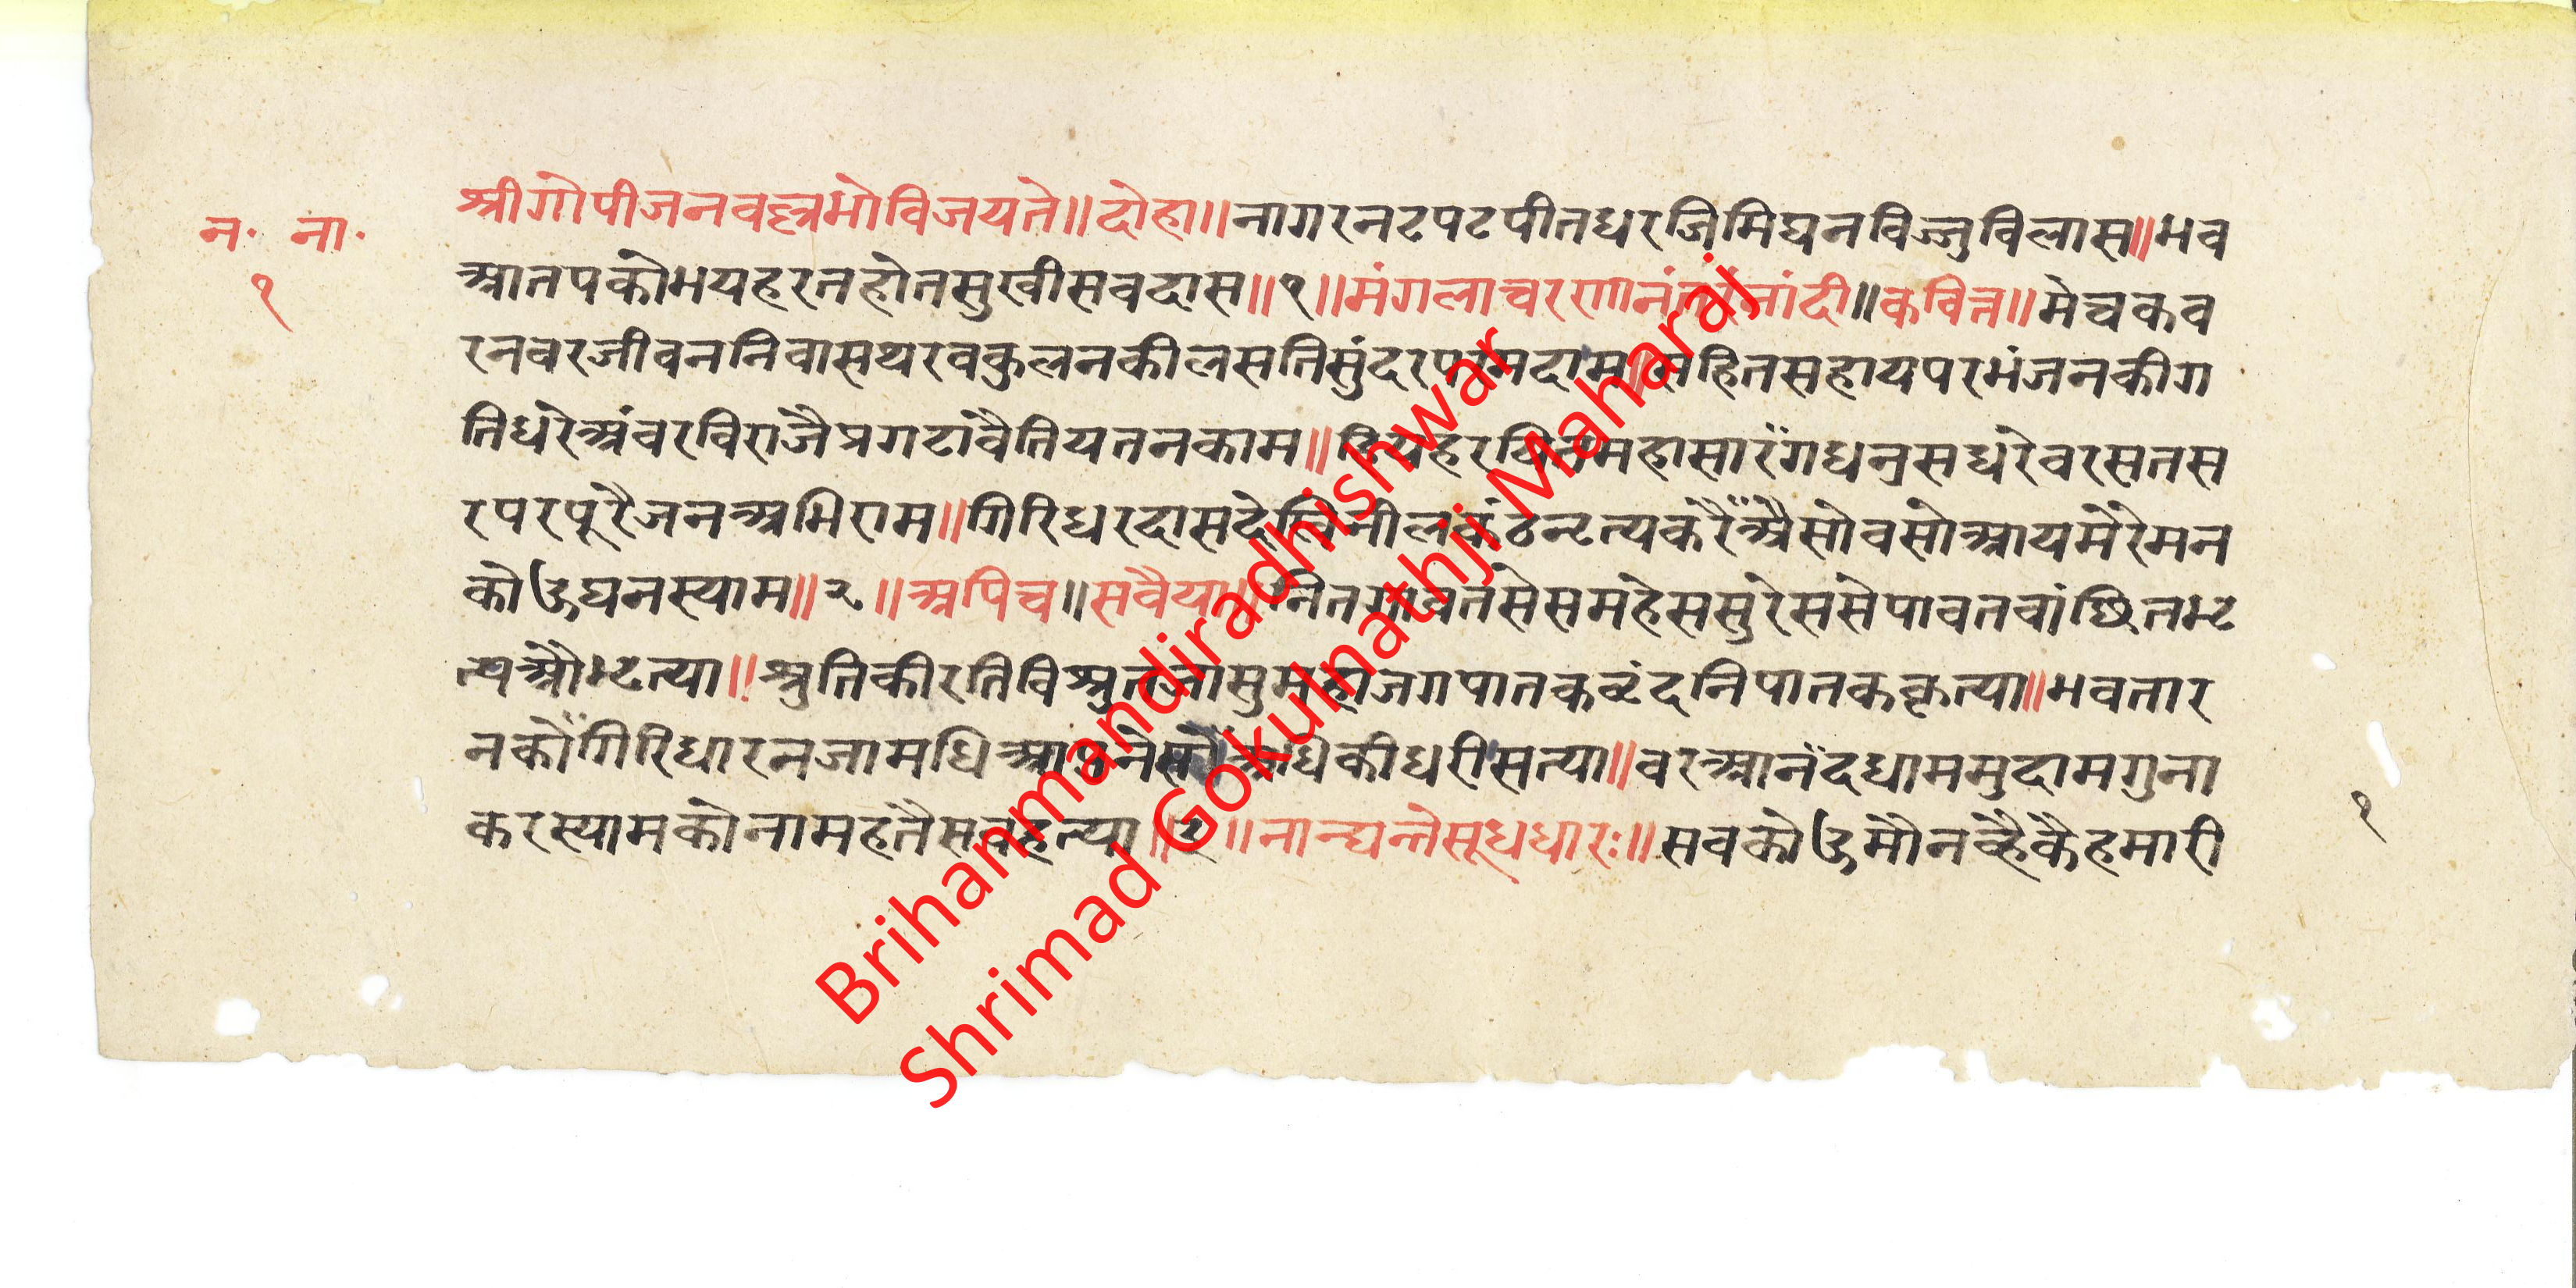 न॰ ना॰
१
श्रीगोपीजनवल्लभोविजयते॥दोहा॥नागरनटपटपीतधरजिमिघनविज्जुविलास॥भव
आतपकोभयहरतहोतसुखीसवदास॥१॥मंगलाचरणानंतरंनांदी॥कवित्त॥मेचकव
रनवरजीवननिवासथरवकुलनकीलसतिसुंदरपरमदाम॥सहितसहायपरभंजनकीग
तिधरेअंवरविराजैप्रगटावैतियतनकाम॥महासारंगधनुसधरेवरसतस
रपरपूरैजनअभिराम॥गिरिधरदासदेखिनीलकंठनृत्यकरैंअैसोवसोआयमेरेमन
कोऊघनस्याम॥२॥अपिच॥सवैया॥नितगावतसेसमहेससुरेससेपावतवांछितभृ
त्यऔभृत्या॥श्रुतिकीरतिविश्रुतजासुमहाजगपातकवृंदनिपातककृत्या॥भवतार
नकोंगिरिधारनजामधिआपनेसोंअधिकीधरीसत्या॥वरआनंदधाममुदामगुना
करस्यामकोनामहतैसवहत्या॥३॥नान्द्यन्तेसूत्रधारः॥सवकोऊमौनव्हैकैहमारी
१
Brihanmandiradhishwar
Shrimad Gokulnathji Maharaj